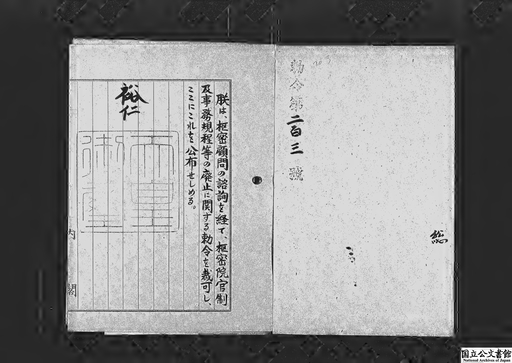 勅令第二百三號
朕は、枢密顧問の諮詢を経て、枢密院官制
及事務規程等の廃止に関する勅令を裁可し、
ここにこれを公布せしめる。
裕仁
天皇御璽
内閣
国立公文書館
National Archives of Japan